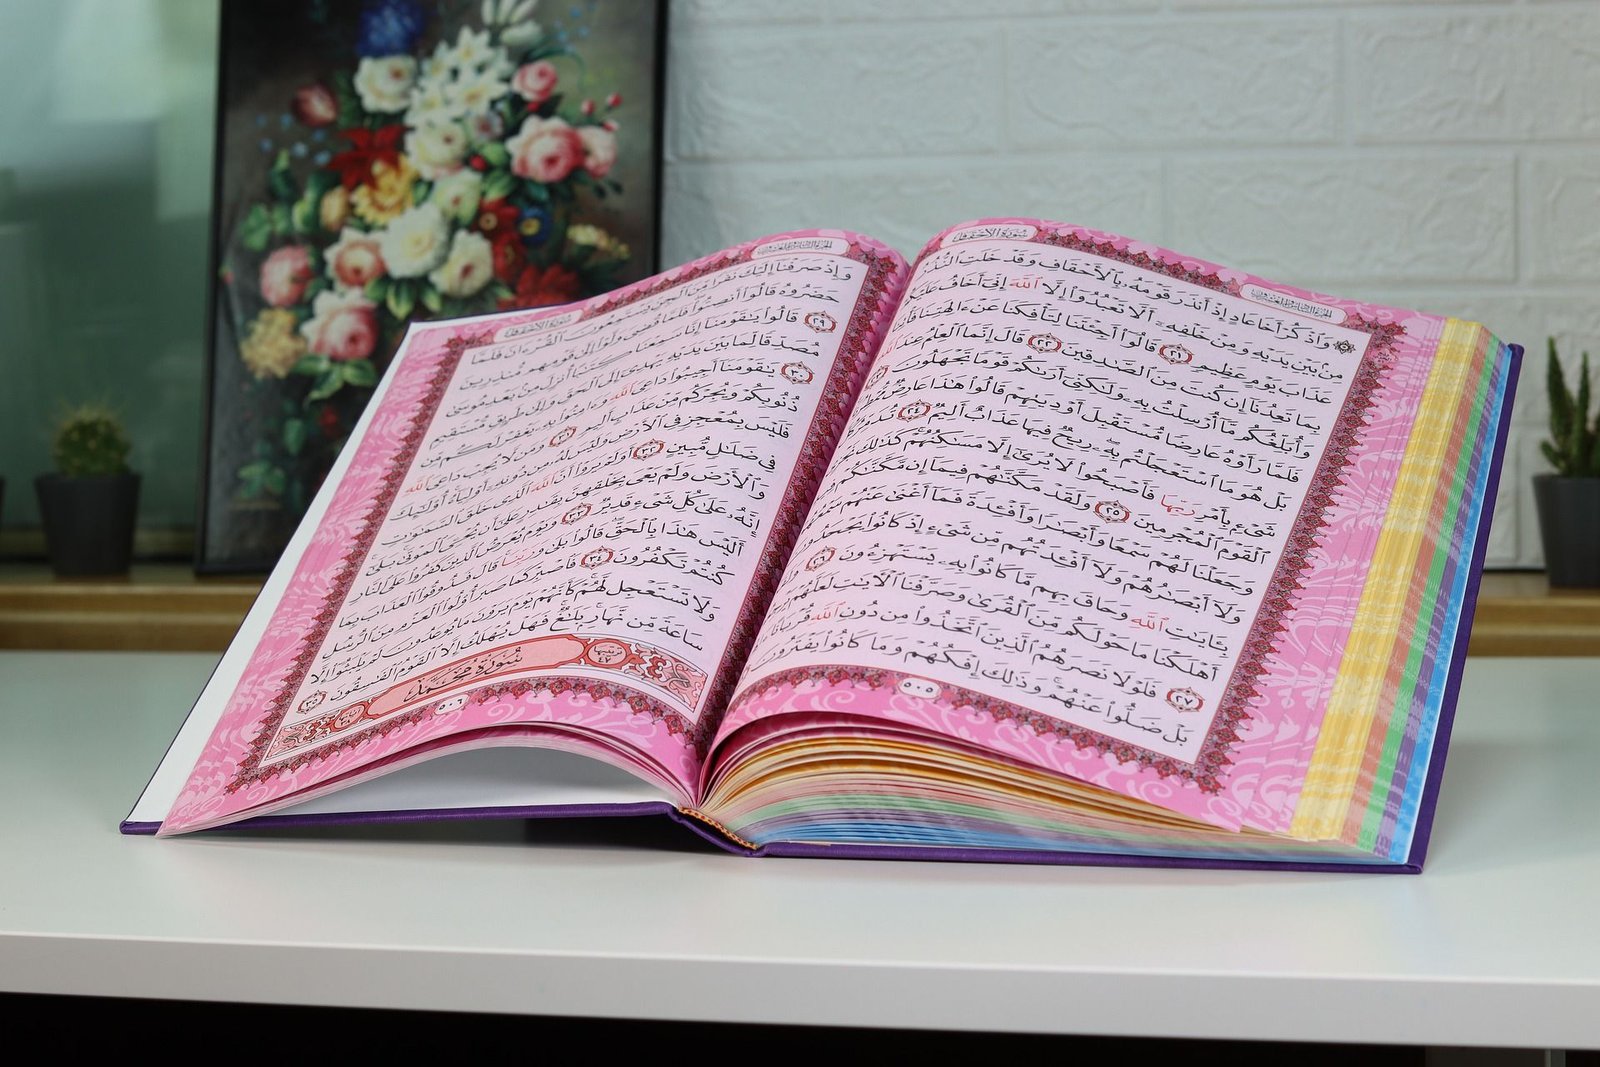 سُورَةُ الْأَحْقَافِ
الجزء السادس والعشرون
۞ وَاذْكُرْ أَخَا عَادٍ إِذْ أَنذَرَ قَوْمَهُۥ بِالْأَحْقَافِ وَقَدْ خَلَتِ النُّذُرُ
مِنْ بَيْنِ يَدَيْهِ وَمِنْ خَلْفِهِۦٓ أَلَّا تَعْبُدُوٓا۟ إِلَّا اللَّهَ إِنِّىٓ أَخَافُ
عَذَابَ يَوْمٍ عَظِيمٍ ٢١ قَالُوٓا۟ أَجِئْتَنَا لِتَأْفِكَنَا عَنْ ءَالِهَتِنَا
بِمَا تَعِدُنَآ إِن كُنتَ مِنَ الصَّٰدِقِينَ ٢٢ قَالَ إِنَّمَا الْعِلْمُ عِندَ اللَّهِ
وَأُبَلِّغُكُم مَّآ أُرْسِلْتُ بِهِۦ وَلَٰكِنِّىٓ أَرَىٰكُمْ قَوْمًا تَجْهَلُونَ
فَلَمَّا رَأَوْهُ عَارِضًا مُّسْتَقْبِلَ أَوْدِيَتِهِمْ قَالُوا۟ هَٰذَا عَارِضٌ
بَلْ هُوَ مَا اسْتَعْجَلْتُم بِهِۦ رِيحٌ فِيهَا عَذَابٌ أَلِيمٌ ٢٤ تُدَمِّرُ
شَىْءٍۭ بِأَمْرِ رَبِّهَا فَأَصْبَحُوا۟ لَا يُرَىٰٓ إِلَّا مَسَٰكِنُهُمْ كَذَٰلِكَ
الْقَوْمَ الْمُجْرِمِينَ ٢٥ وَلَقَدْ مَكَّنَّٰهُمْ فِيمَآ إِن مَّكَّنَّٰكُمْ
وَجَعَلْنَا لَهُمْ سَمْعًا وَأَبْصَٰرًا وَأَفْـِٔدَةً فَمَآ أَغْنَىٰ عَنْهُمْ
وَلَآ أَبْصَٰرُهُمْ وَلَآ أَفْـِٔدَتُهُم مِّن شَىْءٍ إِذْ كَانُوا۟ يَجْحَدُونَ
بِـَٔايَٰتِ اللَّهِ وَحَاقَ بِهِم مَّا كَانُوا۟ بِهِۦ يَسْتَهْزِءُونَ ٢٦
أَهْلَكْنَا مَا حَوْلَكُم مِّنَ الْقُرَىٰ وَصَرَّفْنَا الْءَايَٰتِ لَعَلَّهُمْ
٢٧ فَلَوْلَا نَصَرَهُمُ الَّذِينَ اتَّخَذُوا۟ مِن دُونِ اللَّهِ قُرْبَانًا
بَلْ ضَلُّوا۟ عَنْهُمْ وَذَٰلِكَ إِفْكُهُمْ وَمَا كَانُوا۟ يَفْتَرُونَ
٥٠٥
الجزء السادس والعشرون
سُورَةُ الْأَحْقَافِ
وَإِذْ صَرَفْنَآ إِلَيْكَ نَفَرًا مِّنَ الْجِنِّ يَسْتَمِعُونَ الْقُرْءَانَ فَلَمَّا
حَضَرُوهُ قَالُوٓا۟ أَنصِتُوا۟ فَلَمَّا قُضِىَ وَلَّوْا۟ إِلَىٰ قَوْمِهِم مُّنذِرِينَ
٢٩ قَالُوا۟ يَٰقَوْمَنَآ إِنَّا سَمِعْنَا كِتَٰبًا أُنزِلَ مِنۢ بَعْدِ مُوسَىٰ
مُصَدِّقًا لِّمَا بَيْنَ يَدَيْهِ يَهْدِىٓ إِلَى الْحَقِّ وَإِلَىٰ طَرِيقٍ مُّسْتَقِيمٍ
٣٠ يَٰقَوْمَنَآ أَجِيبُوا۟ دَاعِىَ اللَّهِ وَءَامِنُوا۟ بِهِۦ يَغْفِرْ لَكُم مِّن
ذُنُوبِكُمْ وَيُجِرْكُم مِّنْ عَذَابٍ أَلِيمٍ ٣١ وَمَن لَّا يُجِبْ دَاعِىَ اللَّهِ
فَلَيْسَ بِمُعْجِزٍ فِى الْأَرْضِ وَلَيْسَ لَهُۥ مِن دُونِهِۦٓ أَوْلِيَآءُ أُو۟لَٰٓئِكَ
فِى ضَلَٰلٍ مُّبِينٍ ٣٢ أَوَلَمْ يَرَوْا۟ أَنَّ اللَّهَ الَّذِى خَلَقَ السَّمَٰوَٰتِ
وَالْأَرْضَ وَلَمْ يَعْىَ بِخَلْقِهِنَّ بِقَٰدِرٍ عَلَىٰٓ أَن يُحْـِۧىَ الْمَوْتَىٰ بَلَىٰٓ
إِنَّهُۥ عَلَىٰ كُلِّ شَىْءٍ قَدِيرٌ ٣٣ وَيَوْمَ يُعْرَضُ الَّذِينَ كَفَرُوا۟ عَلَى النَّارِ
أَلَيْسَ هَٰذَا بِالْحَقِّ قَالُوا۟ بَلَىٰ وَرَبِّنَا قَالَ فَذُوقُوا۟ الْعَذَابَ بِمَا
كُنتُمْ تَكْفُرُونَ ٣٤ فَاصْبِرْ كَمَا صَبَرَ أُو۟لُوا۟ الْعَزْمِ مِنَ الرُّسُلِ
وَلَا تَسْتَعْجِل لَّهُمْ كَأَنَّهُمْ يَوْمَ يَرَوْنَ مَا يُوعَدُونَ لَمْ يَلْبَثُوٓا۟ إِلَّا
سَاعَةً مِّن نَّهَارٍ بَلَٰغٌ فَهَلْ يُهْلَكُ إِلَّا الْقَوْمُ الْفَٰسِقُونَ ٣٥
ترتيبها ٤٧ سُورَةُ مُحَمَّدٍ ٣٨
٥٠٦